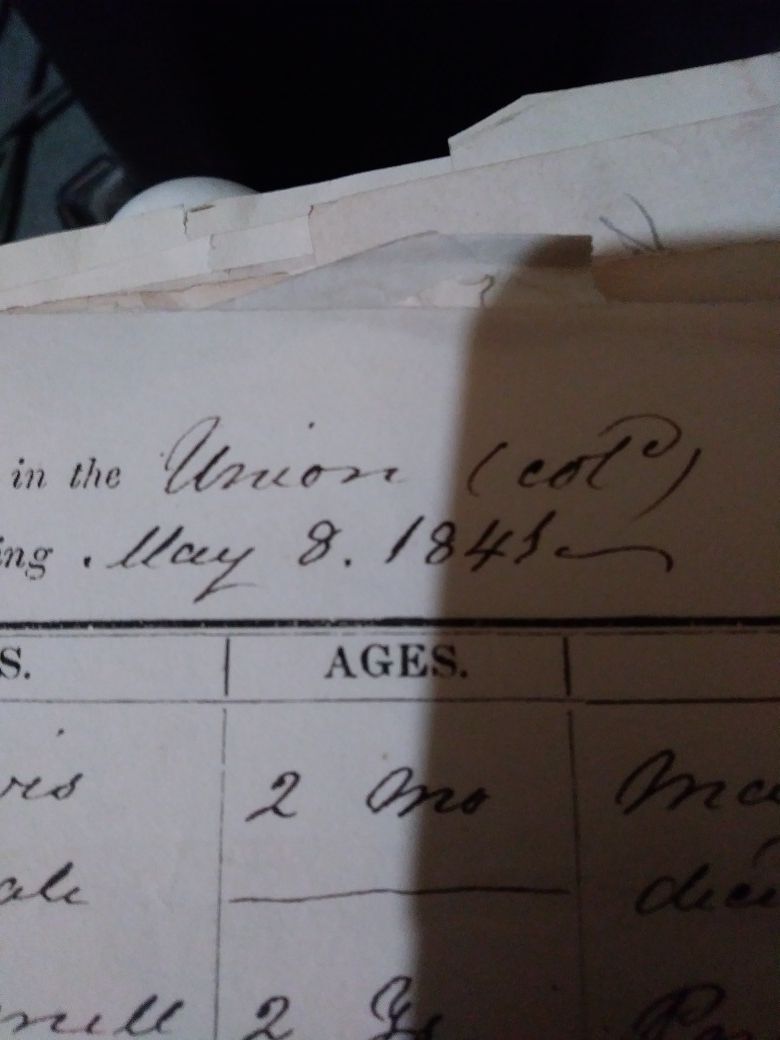 in the Union (cold)
ing May 8. 1841
S. AGES.
ris 2 mo
ale
nell 2 Ys